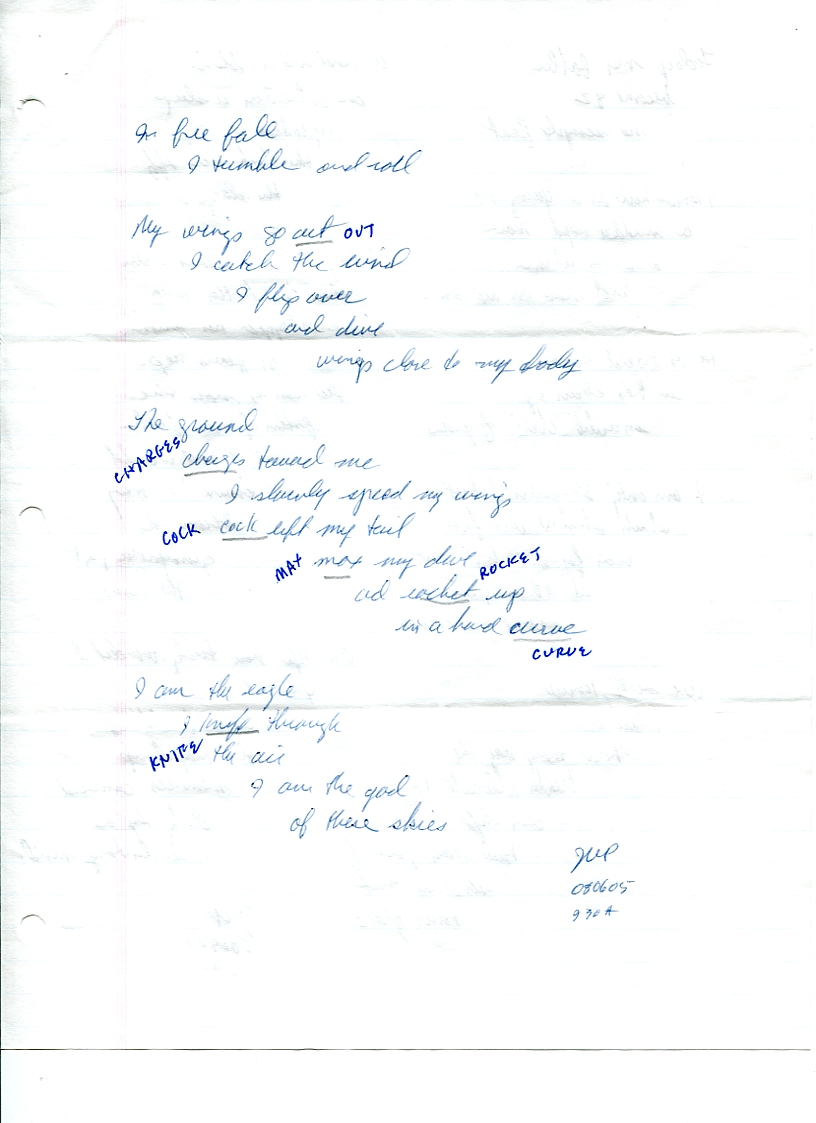 In free fall
I tumble and roll
My wings go out OUT
I catch the wind
I flip over
and dive
wings close to my body
The ground
CHARGES charges toward me
I slowly spread my wings
COCK cock left my tail
MAX max my dive ROCKET
and rocket up
in a hard curve
CURVE
I am the eagle
I knife through
KNIFE the air
I am the god
of these skies
080605
930A